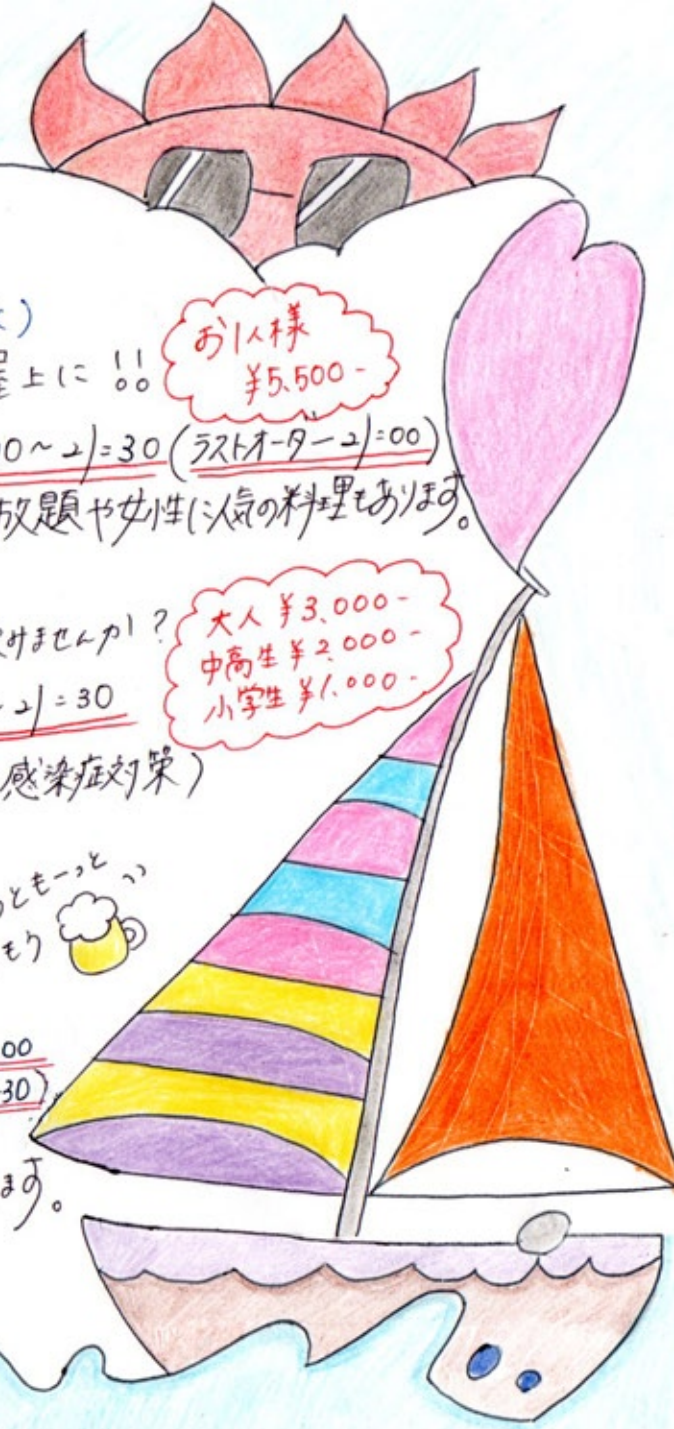 )
屋上に!!
お1人様
¥5.500-
00～21:30(ラストオーダー21:00)
放題や女性に人気の料理もあります。
みませんか?
大人¥3,000-
中高生¥2,000-
小学生¥1,000-
~21:30
感染症対策)
っともーっと
もう
00
30)
ます。